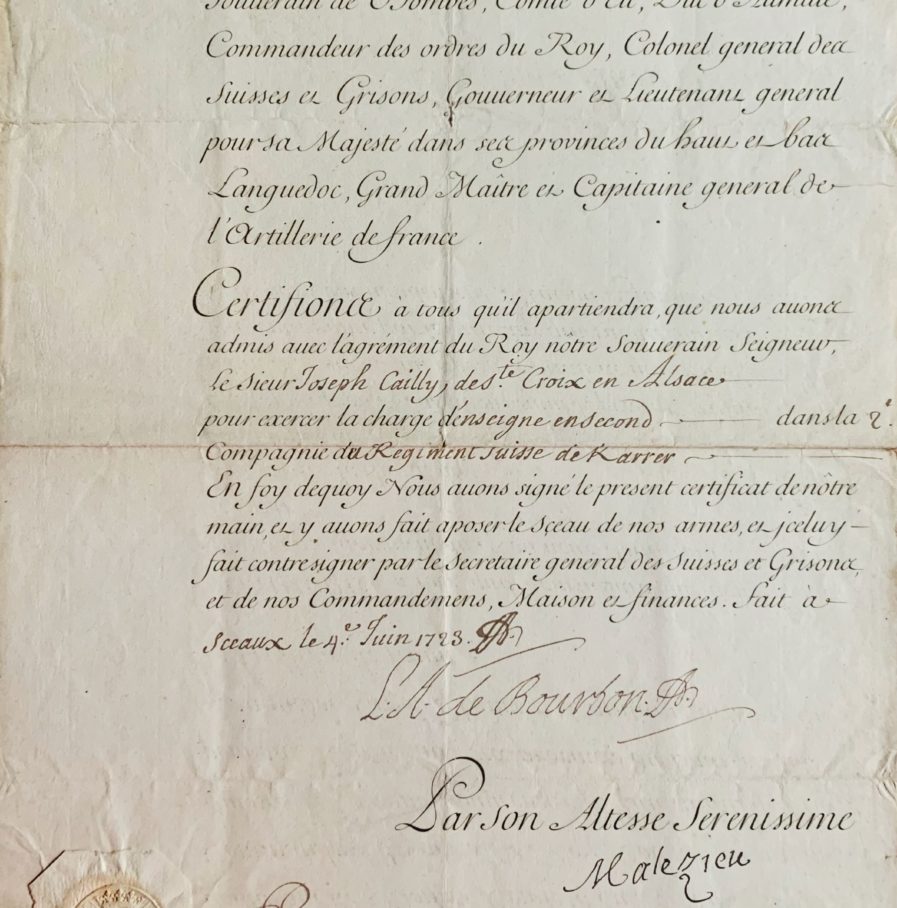 Souverain de Dombes, Comte d'Eu, Duc d'Aumale,
Commandeur des ordres du Roy, Colonel general des
Suisses et Grisons, Gouuerneur et Lieutenant general
pour sa Majesté dans ses prouinces du haut et bas
Languedoc, Grand Maître et Capitaine general de
l'Artillerie de france.
Certifions à tous qu'il apartiendra, que nous auons
admis auec l'agrément du Roy nôtre Souuerain Seigneur,
le sieur Joseph Cailly, de Ste. Croix en Alsace
pour exercer la charge d'enseigne en second dans la 2e.
Compagnie du Regiment Suisse de Karrer
En foy dequoy Nous auons signé le present certificat de nôtre
main, et y auons fait aposer le sceau de nos armes, et jceluy
fait contresigner par le secretaire general des Suisses et Grisons,
et de nos Commandemens, Maison et finances. Fait à
Sceaux le 4e. Juin 1723.
L. A. de Bourbon.
Par Son Altesse Serenissime
Malezieu